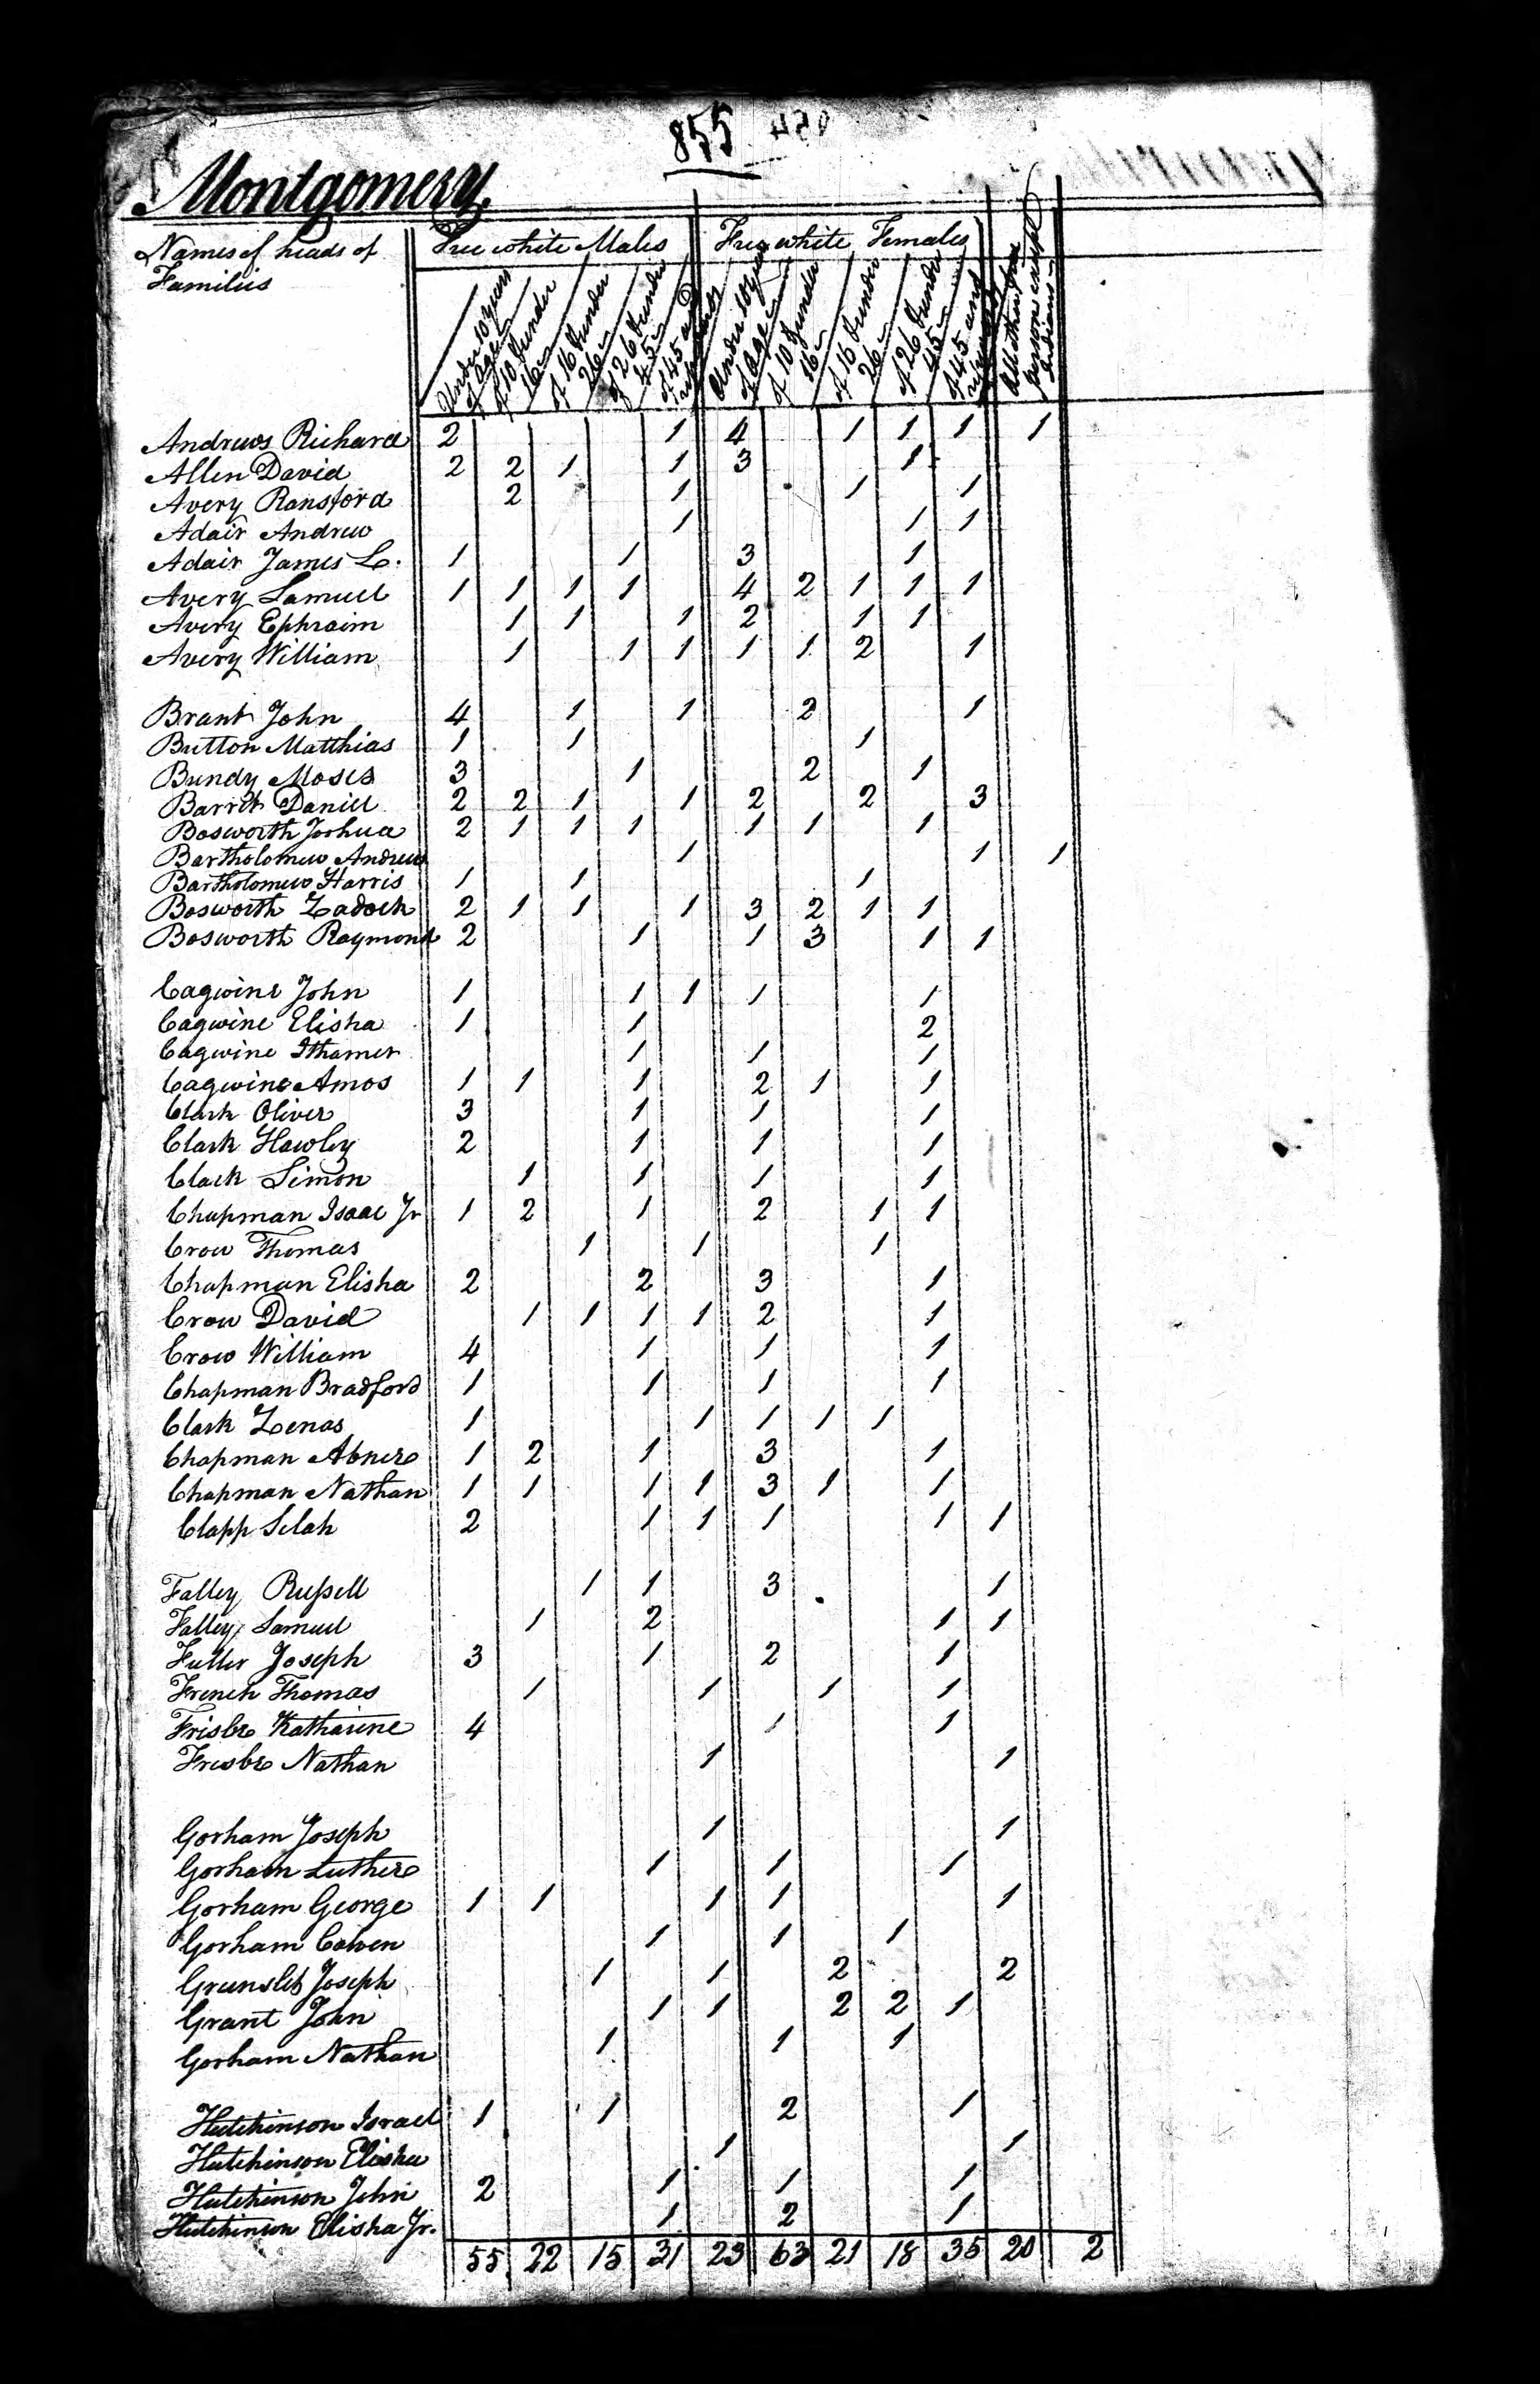 855
Montgomery
Names of heads of Families
Free white Males
Free white Females
Under 10 years of age
of 10 & under 16
of 16 & under 26
of 26 & under 45
of 45 and upwards
Under 10 years of age
of 10 & under 16
of 16 & under 26
of 26 & under 45
of 45 and upwards
All other free persons except Indians
Andrews Richard 2 1 4 1 1 1 1
Allen David 2 2 1 1 3 1
Avery Ransford 2 1 1 1
Adair Andrew 1 1 1
Adair James L. 1 1 3 1
Avery Samuel 1 1 1 1 4 2 1 1 1
Avery Ephraim 1 1 1 2 1 1
Avery William 1 1 1 1 1 2 1
Brant John 4 1 1 2 1
Button Matthias 1 1 1
Bundy Moses 3 1 2 1
Barrit Daniel 2 2 1 1 2 2 3
Bosworth Joshua 2 1 1 1 1 1 1
Bartholomew Andrew 1 1 1
Bartholomew Harris 1 1 1
Bosworth Zadock 2 1 1 1 3 2 1 1
Bosworth Raymond 2 1 1 3 1 1
Cagwine John 1 1 1 1 1
Cagwine Elisha 1 1 2
Cagwine Ithamer 1 1 1
Cagwine Amos 1 1 1 2 1 1
Clark Oliver 3 1 1 1
Clark Hawley 2 1 1 1
Clark Simon 1 1 1 1
Chapman Isaac Jr 1 2 1 2 1 1
Crow Thomas 1 1 1
Chapman Elisha 2 2 3 1
Crow David 1 1 1 1 2 1
Crow William 4 1 1 1
Chapman Bradford 1 1 1 1
Clark Zenas 1 1 1 1 1
Chapman Abner 1 2 1 3 1
Chapman Nathan 1 1 1 1 3 1 1
Clapp Selah 2 1 1 1 1 1
Falley Russell 1 1 3 1
Falley Samuel 1 2 1 1
Fuller Joseph 3 1 2 1
French Thomas 1 1 1 1
Frisbe Katharine 4 1 1
Frisbe Nathan 1 1
Gorham Joseph 1 1
Gorham Luther 1 1 1
Gorham George 1 1 1 1 1
Gorham Cowen 1 1 1
Grunslet Joseph 1 1 2 2
Grant John 1 1 2 2 1
Gorham Nathan 1 1 1
Hutchinson Israel 1 1 2 1
Hutchinson Elisha 1 1
Hutchinson John 2 1 1 1
Hutchinson Elisha Jr. 1 2 1
55 22 15 31 23 63 21 18 35 20 2